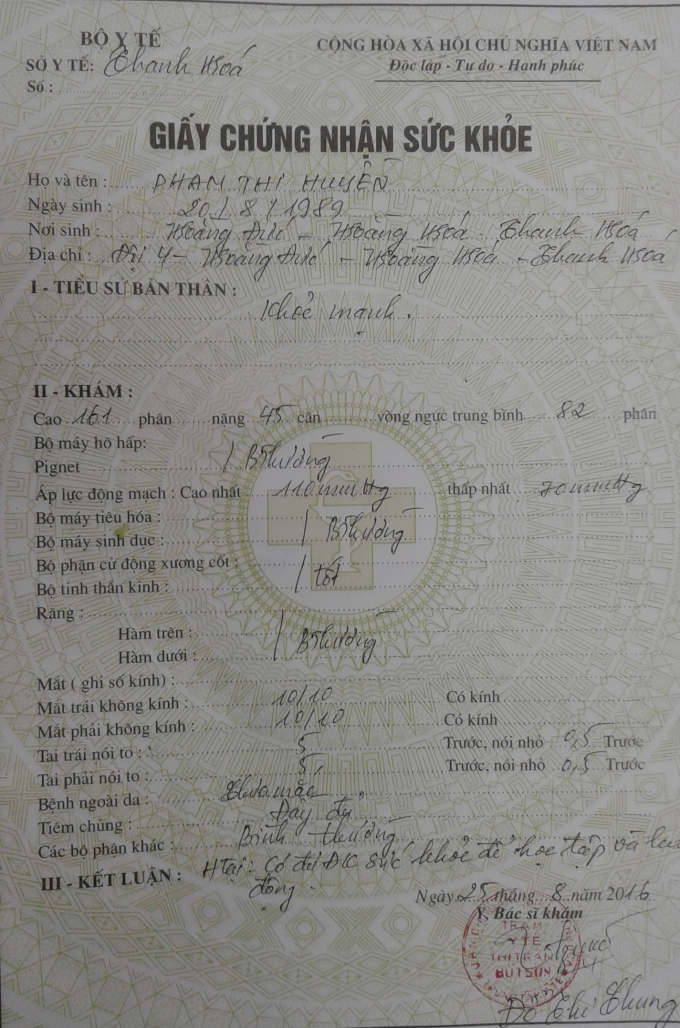 BỘ Y TẾ
CỘNG HÒA XÃ HỘI CHỦ NGHĨA VIỆT NAM
SỞ Y TẾ: Thanh Hoá
Độc lập - Tự do - Hạnh phúc
Số :
GIẤY CHỨNG NHẬN SỨC KHỎE
Họ và tên : PHẠM THỊ HUYỀN
Ngày sinh : 20 / 8 / 1989
Nơi sinh : Hoằng Đức - Hoằng Hoá - Thanh Hoá
Địa chỉ : Đội 4 - Hoằng Đức - Hoằng Hoá - Thanh Hoá
I - TIỂU SỬ BẢN THÂN :
Khỏe mạnh.
II - KHÁM :
Cao 161 phân nặng 45 cân vòng ngực trung bình 82 phân
Bộ máy hô hấp:
Pignet / Bthường
Áp lực động mạch : Cao nhất 110mmHg thấp nhất 70mmHg
Bộ máy tiêu hóa :
Bộ máy sinh dục : / Bthường
Bộ phận cử động xương cốt :
Bộ tinh thần kinh : / tốt
Răng :
Hàm trên :
Hàm dưới : / Bthường
Mắt ( ghi số kính) :
Mắt trái không kính : 10/10 Có kính
Mắt phải không kính : 10/10 Có kính
Tai trái nói to : 5 Trước, nói nhỏ 0,5 Trước
Tai phải nói to : 5 Trước, nói nhỏ 0,5 Trước
Bệnh ngoài da : Chưa mắc
Tiêm chủng : Đầy đủ
Các bộ phận khác : Bình thường
III - KẾT LUẬN : Htại: Có đủ ĐK sức khỏe để học tập và lao
động.
Ngày 25 tháng 8 năm 2016
Y, Bác sĩ khám
TRẠM
Y TẾ
THỊ TRẤN
BÚT SƠN
Đỗ Thị Chung